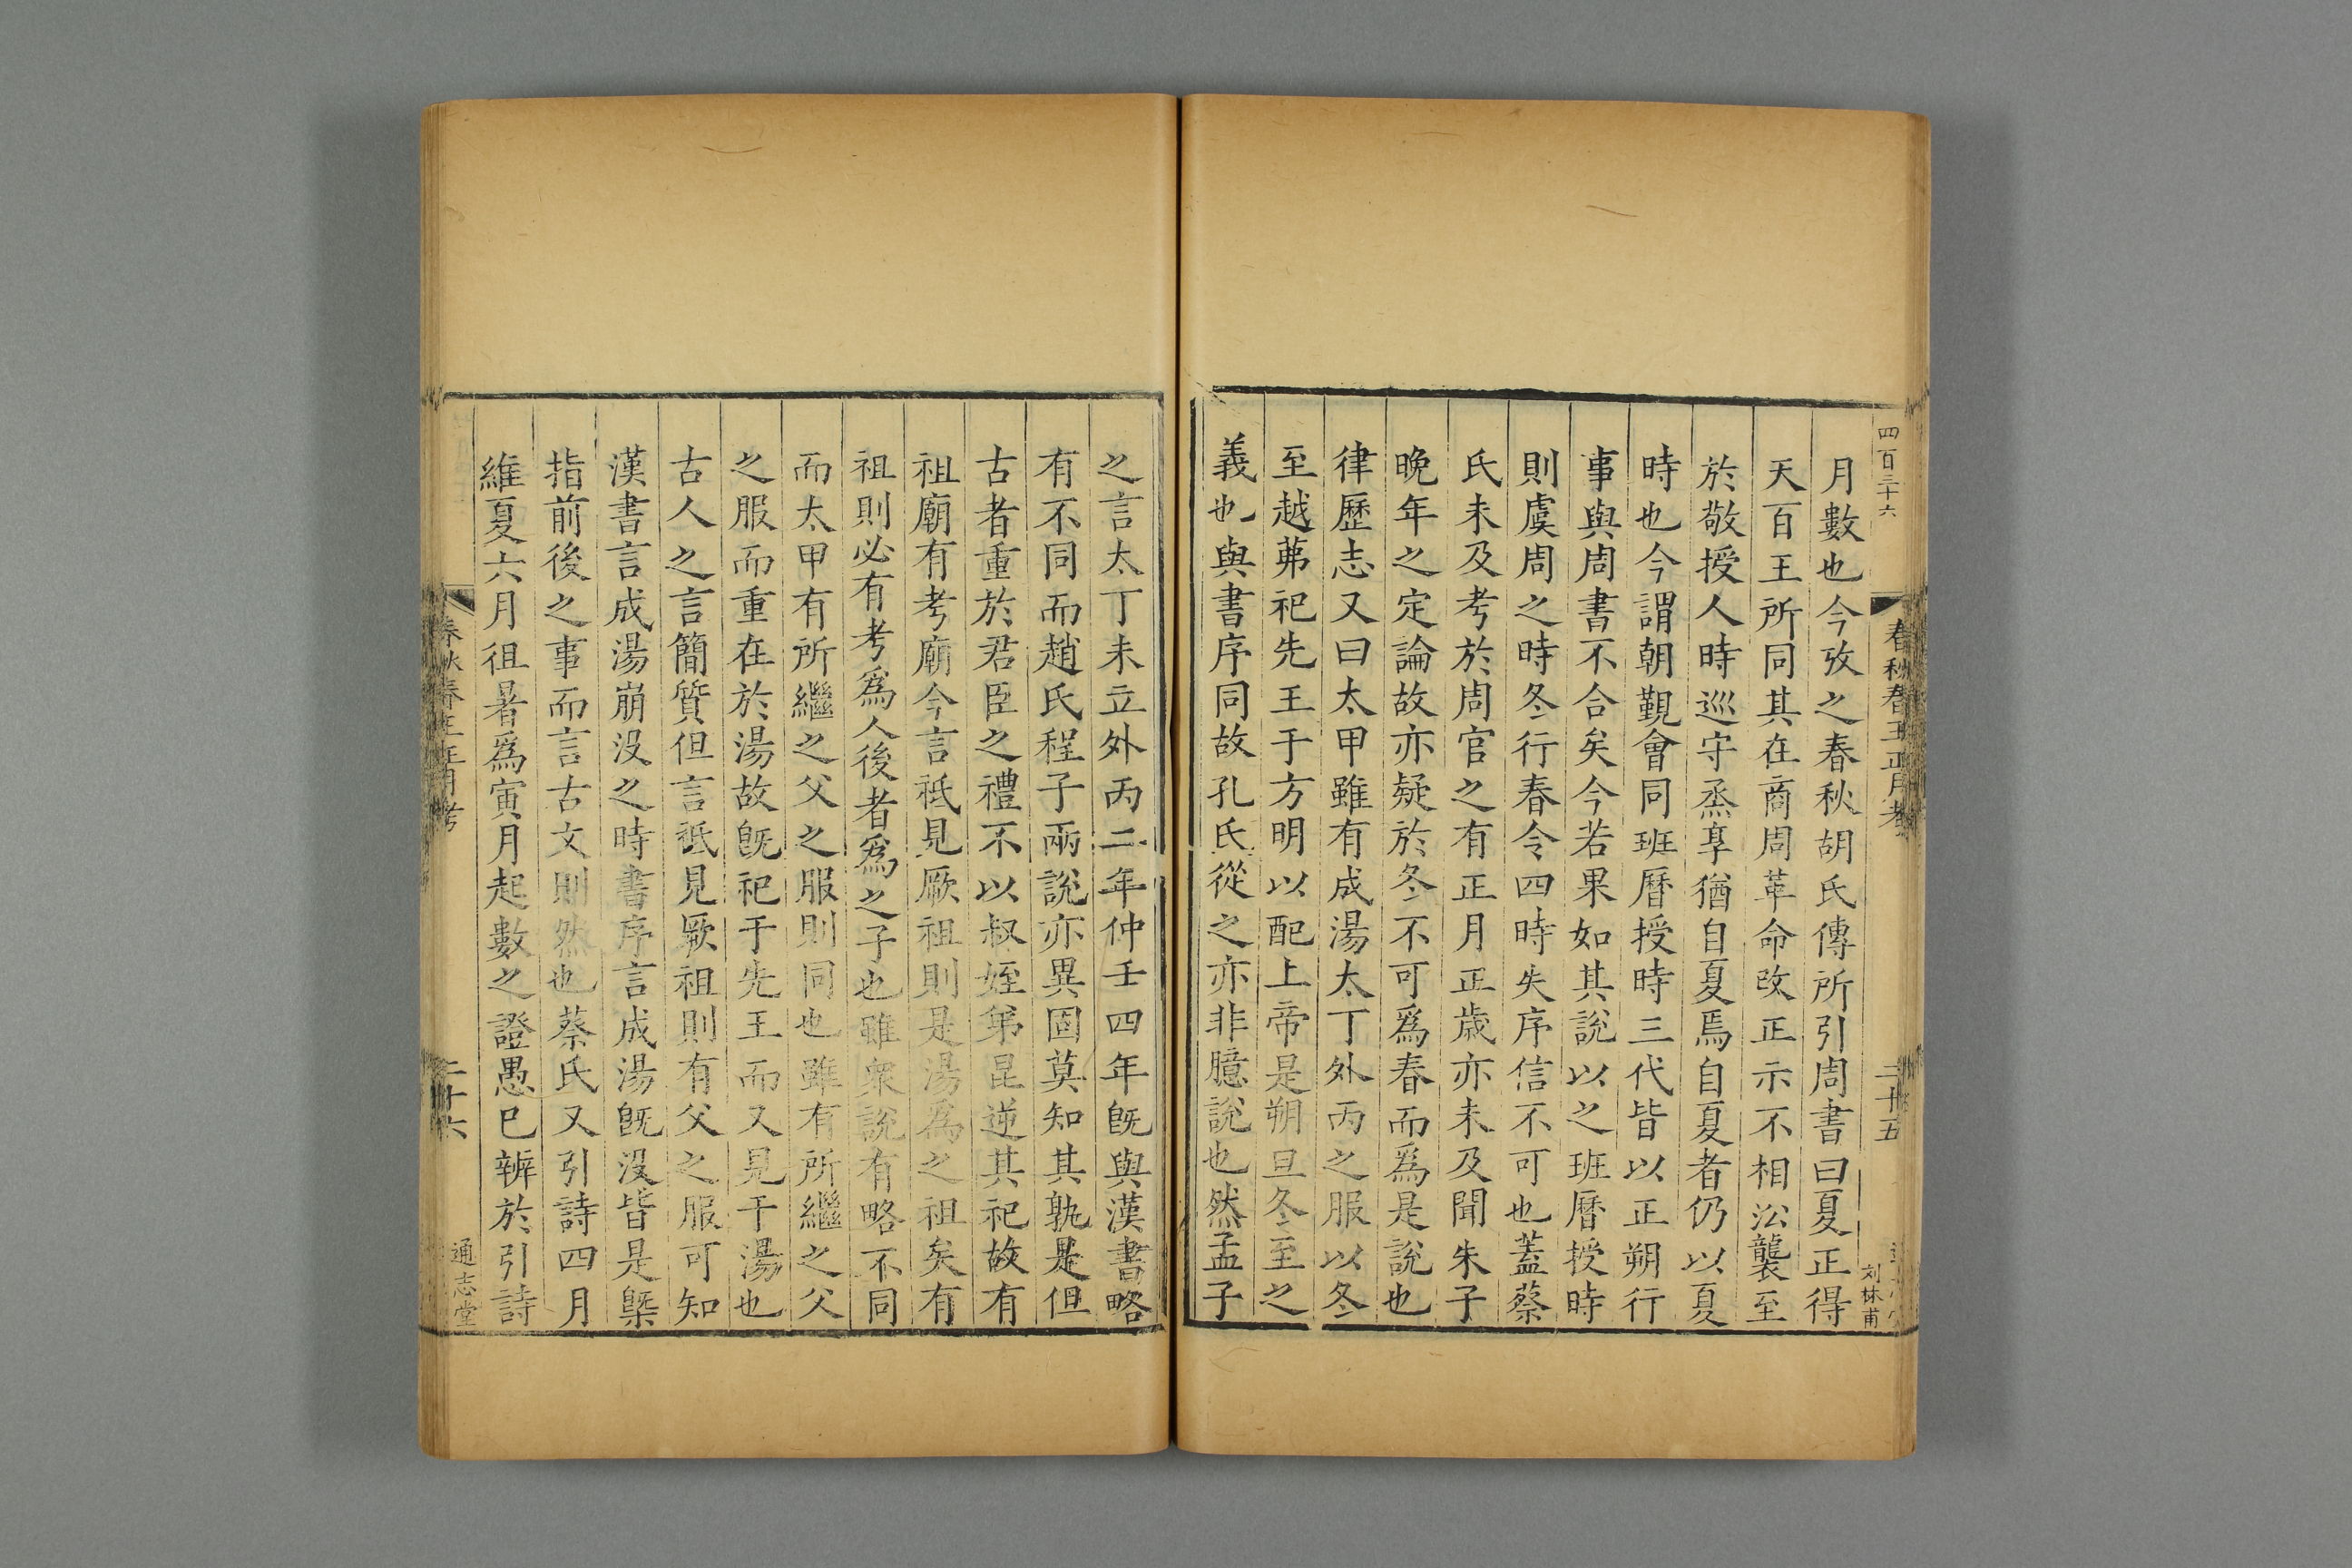 四百三十六
春秋春王正月考
二十五
刘林甫
月數也今攷之春秋胡氏傳所引周書曰夏正得
天百王所同其在商周革命改正示不相㳂襲至
於敬授人時巡守烝享猶自夏焉自夏者仍以夏
時也今謂朝覲會同班曆授時三代皆以正朔行
事與周書不合矣今若果如其說以之班曆授時
則虞周之時冬行春令四時失序信不可也蓋蔡
氏未及考於周官之有正月正歳亦未及聞朱子
晚年之定論故亦疑於冬不可爲春而爲是說也
律歷志又曰太甲雖有成湯太丁外丙之服以冬
至越茀祀先王于方明以配上帝是朔旦冬至之
義也與書序同故孔氏從之亦非臆說也然孟子
之言太丁未立外丙二年仲壬四年旣與漢書略
有不同而趙氏程子兩說亦異固莫知其孰是但
古者重於君臣之禮不以叔姪弟昆逆其祀故有
祖廟有考廟今言祗見厥祖則是湯爲之祖矣有
祖則必有考爲人後者爲之子也雖衆說有略不同
而太甲有所繼之父之服則同也雖有所繼之父
之服而重在於湯故旣祀于先王而又見于湯也
古人之言簡質但言祗見厥祖則有父之服可知
漢書言成湯崩没之時書序言成湯旣没皆是槩
指前後之事而言古文則然也蔡氏又引詩四月
維夏六月徂暑爲寅月起數之證愚已辨於引詩
春秋春王正月考
二十六
通志堂